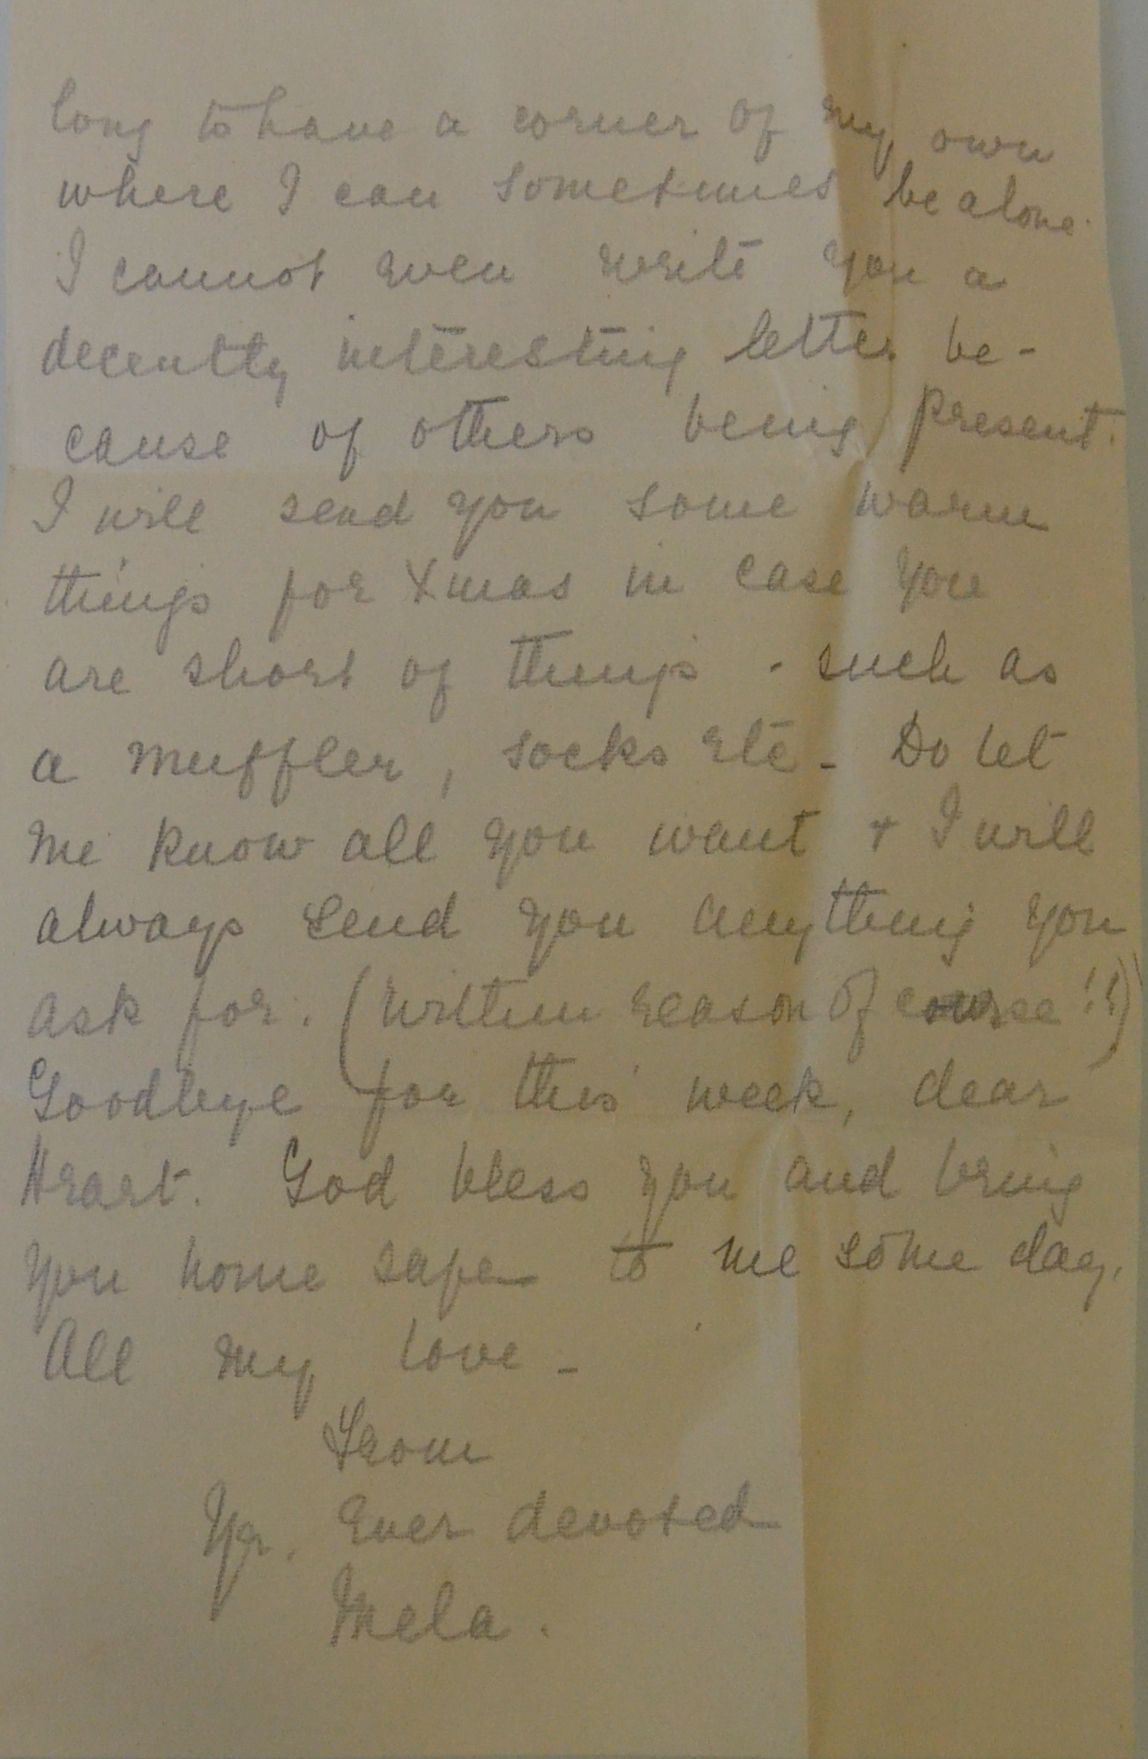 long to have a corner of my own
where I can sometimes be alone.
I cannot even write you a
decently interesting letter be-
cause of others being present.
I will send you some warm
things for Xmas in case you
are short of things - such as
a muffler, socks etc - Do let
me know all you want + I will
always send you anything you
ask for. (Within reason of course!!)
Goodbye for this week, dear
Heart. God bless you and bring
you home safe to me some day.
All my love -
From
Yr. Ever devoted
Mela.